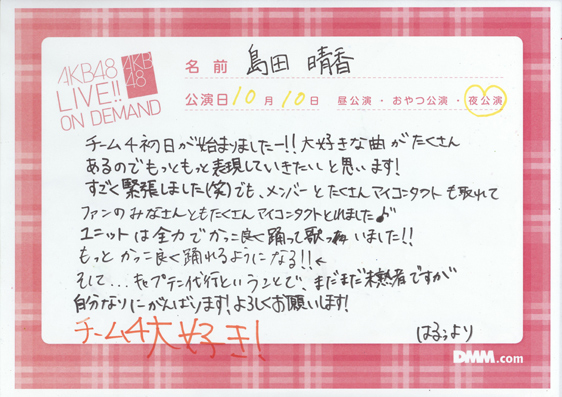 AKB48
LIVE!!
ON DEMAND
AKB
48
名前 島田 晴香
公演日 10月10日 昼公演・おやつ公演・夜公演
チーム4初日が始まりましたー!!大好きな曲がたくさん
あるのでもっともっと表現していきたいと思います!
すごく緊張しました(笑)でも、メンバーとたくさんアイコンタクトも取れて
ファンのみなさんともたくさんアイコンタクトとれました♪
ユニットは全力でかっこ良く踊って歌っちゃいました!!
もっとかっこ良く踊れるようになる!!
そして...キャプテン代行ということで、まだまだ未熟者ですが
自分なりにがんばります!よろしくお願いします!
チーム4大好き!
はるぅより
DMM.com